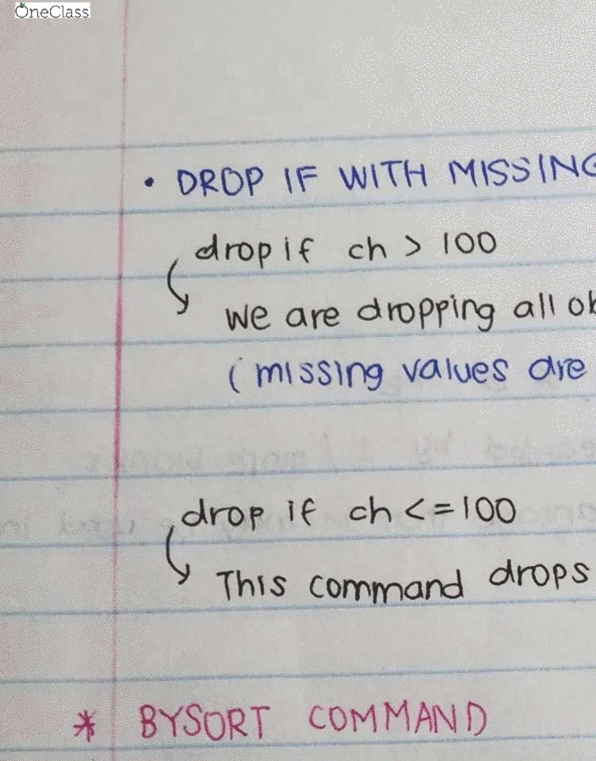 OneClass
• DROP IF WITH MISSING
drop if ch > 100
we are dropping all ob
(missing values are
drop if ch <= 100
This command drops
* BYSORT COMMAND